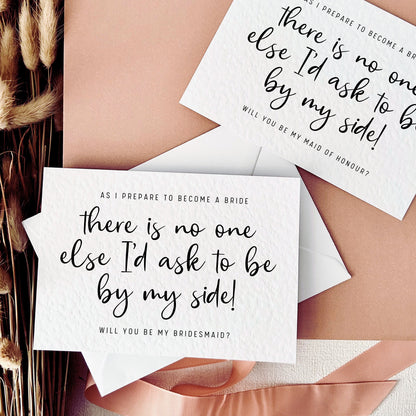 AS I PREPARE TO BECOME A BRIDE
there is no one
else I'd ask to be
by my side!
WILL YOU BE MY MAID OF HONOUR?
AS I PREPARE TO BECOME A BRIDE
there is no one
else I'd ask to be
by my side!
WILL YOU BE MY BRIDESMAID?